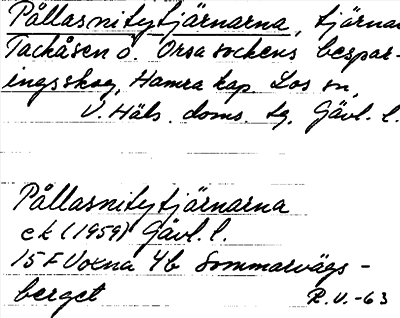 Pållasnitytjärnarna, tjärnar
Tackåsen ö. Orsa sockens bespar-
ingsskog, Hamra kap Los sn,
V. Häls. doms. sg. Gävl. l.
Pållasnitytjärnarna
ek (1959) Gävl. l.
15 F Voxna 4b Sommarvägs-
berget
R.V.-63